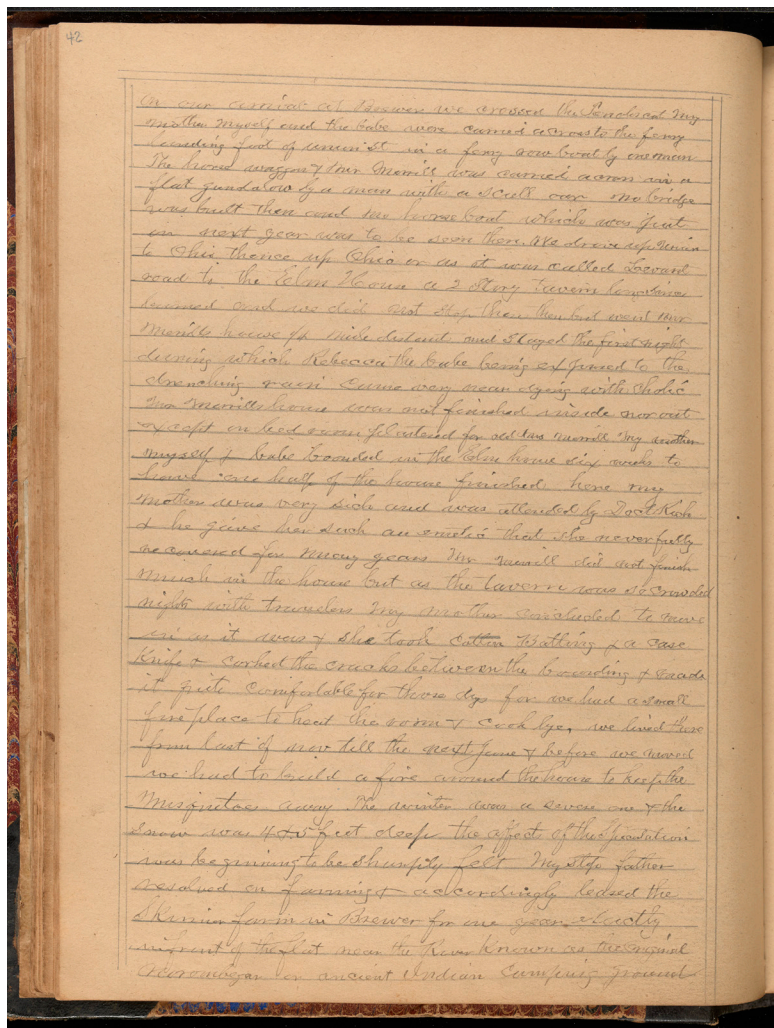 42
On our arrival at Brewer we crossed the My
mother myself and the babe were carried across to the ferry
landing foot of union St in a ferry row boat by one man
The horse waggon & Mr Merrill was carried across in a
flat gundalow by a man with a scull oar no bridge
was built then and no horse boat which was put
on next year was to be seen then We drove up Union
to Ohio thence up Ohio or as it was called Levant
road to the Elm House a 2 Story Tavern
and we did not stop then but went
Merrills house ½ mile distant and Stayed the first night
during which Rebecca the babe being exposed to the
drenching rain came very near dying with cholic
Mr Merrills house was not finished inside nor out
except on bed room plastered for old Mrs Merrill My mother
myself & babe boarded in the Elm house six weeks to
have one half of the house finished here my
mother was very sick and was attended by Doct Rich
& he gave her such an emetic that she never fully
recovered for many years Mr Merrill did not finish
much in the house but as the tavern was so crowded
nights with travelers My mother concluded to move
in as it was & she took Batting & a case
Knife & corked the cracks between the boarding & made
it quite comfortable for those dys for we had a small
fireplace to heat the room & cook bye, we lived there
from last of nov till the next June & before we moved
we had to build a fire around the house to keep the
Musquetoes away The winter was a severe one & the
snow was 4 & 5 feet deep the affect of the
was beginning to be Sharply felt My step father
resolved on farming & accordingly leased the
Skinner farm in Brewer for one year exactly
of the flat near the River Known as the original
or ancient Indian Camping ground